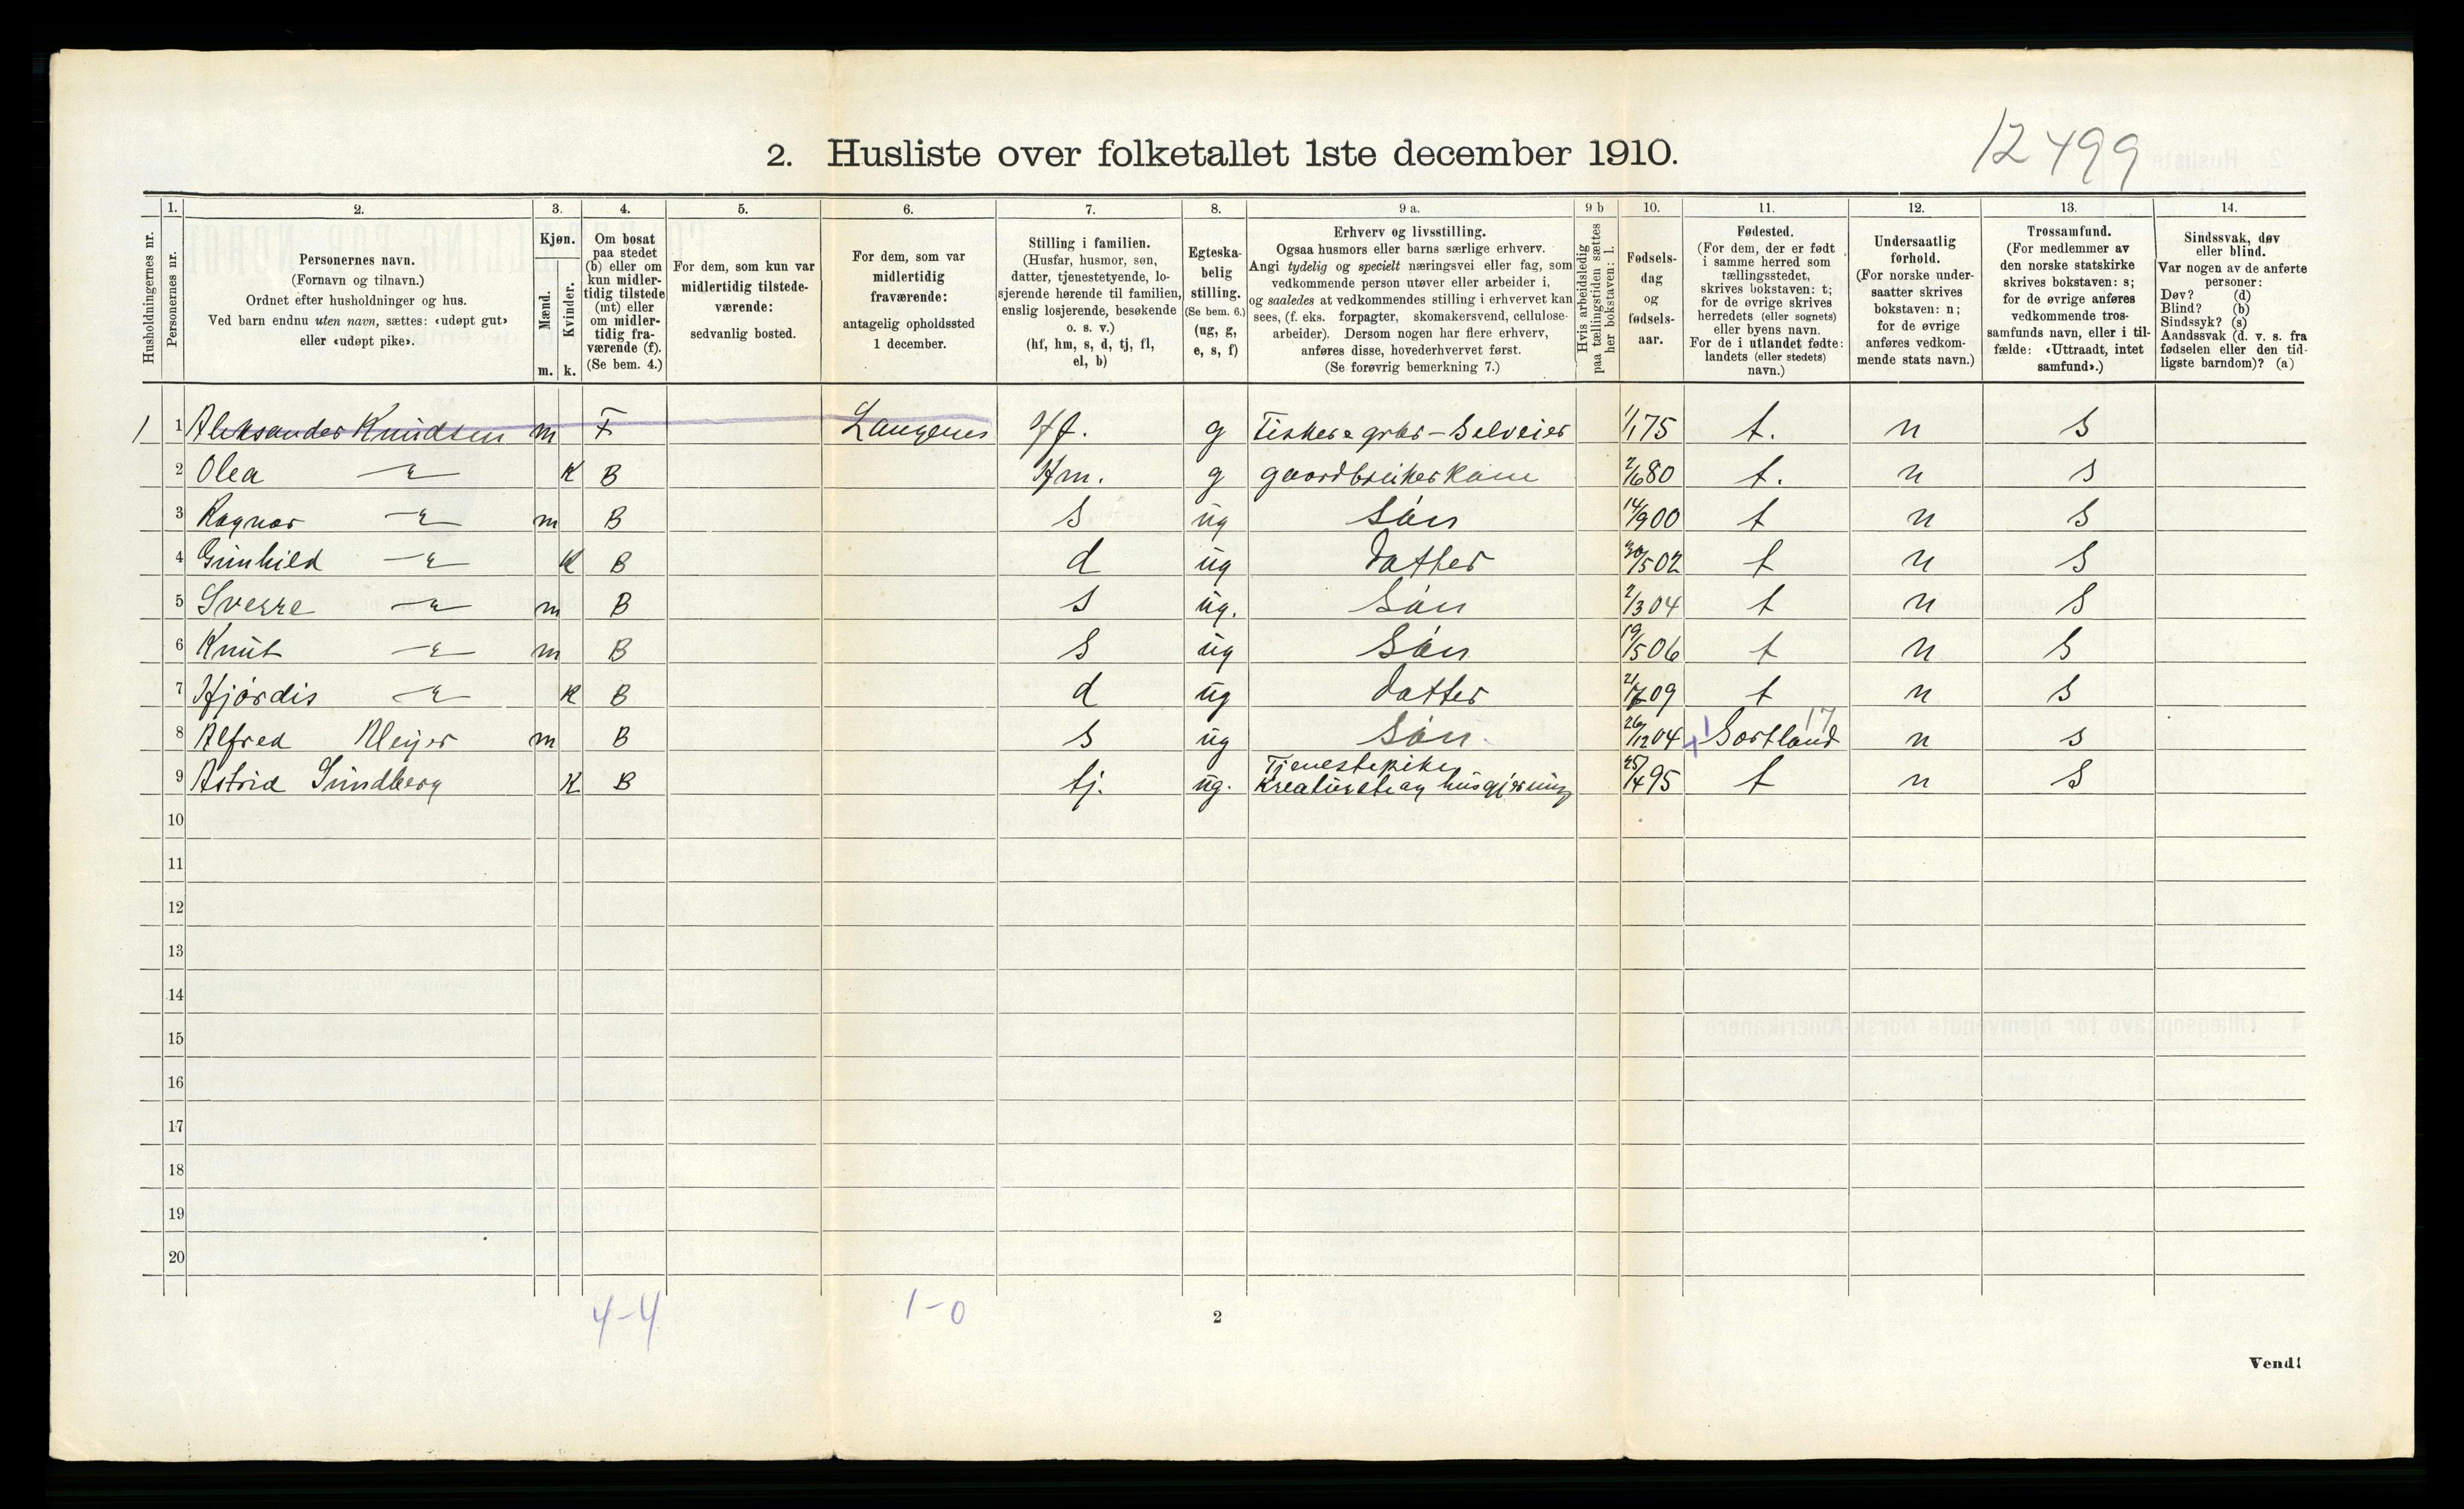 2. Husliste over folketallet 1ste december 1910.
12499
Husholdningernes nr.
1.
Personernes nr.
2.
Personernes navn.
(Fornavn og tilnavn.)
Ordnet efter husholdninger og hus.
Ved barn endnu uten navn, sættes: «udøpt gut»
eller «udøpt pike».
3.
Kjøn.
Mænd.
Kvinder.
m. k.
4.
Om bosat
paa stedet
(b) eller om
kun midler-
tidig tilstede
(mt) eller
om midler-
tidig fra-
værende (f).
(Se bem. 4.)
5.
For dem, som kun var
midlertidig tilstede-
værende:
sedvanlig bosted.
6.
For dem, som var
midlertidig
fraværende:
antagelig opholdssted
1 december.
7.
Stilling i familien.
(Husfar, husmor, søn,
datter, tjenestetyende, lo-
sjerende hørende til familien,
enslig losjerende, besøkende
o. s. v.)
(hf, hm, s, d, tj, fl,
el, b)
8.
Egteska-
belig
stilling.
(Se bem. 6.)
(ug, g,
e, s, f)
9 a.
Erhverv og livsstilling.
Ogsaa husmors eller barns særlige erhverv.
Angi tydelig og specielt næringsvei eller fag, som
vedkommende person utøver eller arbeider i,
og saaledes at vedkommendes stilling i erhvervet kan
sees, (f. eks. forpagter, skomakersvend, cellulose-
arbeider). Dersom nogen har flere erhverv,
anføres disse, hovederhvervet først.
(Se forøvrig bemerkning 7.)
9 b
Hvis arbeidsledig
paa tællingstiden sættes
her bokstaven: l.
10.
Fødsels-
dag
og
fødsels-
aar.
11.
Fødested.
(For dem, der er født
i samme herred som
tællingsstedet,
skrives bokstaven: t;
for de øvrige skrives
herredets (eller sognets)
eller byens navn.
For de i utlandet fødte:
landets (eller stedets)
navn.)
12.
Undersaatlig
forhold.
(For norske under-
saatter skrives
bokstaven: n;
for de øvrige
anføres vedkom-
mende stats navn.)
13.
Trossamfund.
(For medlemmer av
den norske statskirke
skrives bokstaven: s;
for de øvrige anføres
vedkommende tros-
samfunds navn, eller i til-
fælde: «Uttraadt, intet
samfund».)
14.
Sindssvak, døv
eller blind.
Var nogen av de anførte
personer:
Døv? (d)
Blind? (b)
Sindssyk? (s)
Aandssvak (d. v. s. fra
fødselen eller den tid-
ligste barndom)? (a)
1 1 Aleksander Knudsen m F Langenes Hf. g Fisker e grbr - Selveier 1/1 75 t. n S
2 Olea — K B Hm. g gaardbrukerkone 2/6 80 t. n S
3 Ragnar — m B S ug Søn 14/9 00 t n S
4 Gunhild — K B d ug Datter 30/5 02 t n S
5 Sverre — m B S ug. Søn 2/3 04 t n S
6 Knut — m B S ug Søn 19/5 06 t n S
7 Hjørdis — K B d ug Datter 21/7 09 t n S
8 Alfred Meyer m B S ug Søn 26/12 04 Sortland 17 n S
9 Astrid Sundberg K B tj. ug. Tjenestepike
Kreaturstel og husgjerning 25/4 95 t n S
10
11
12
13
14
15
16
17
18
19
20
4-4 1-0
2
Vend!